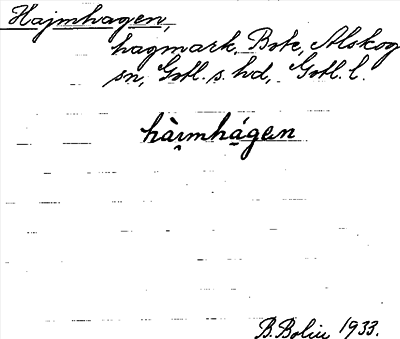 Hajmhagen,
hagmark, Bote, Alskog
sn, Gotl. s. hd, Gotl. l.
hài̯mhá̱gen
B. Bolin 1933.